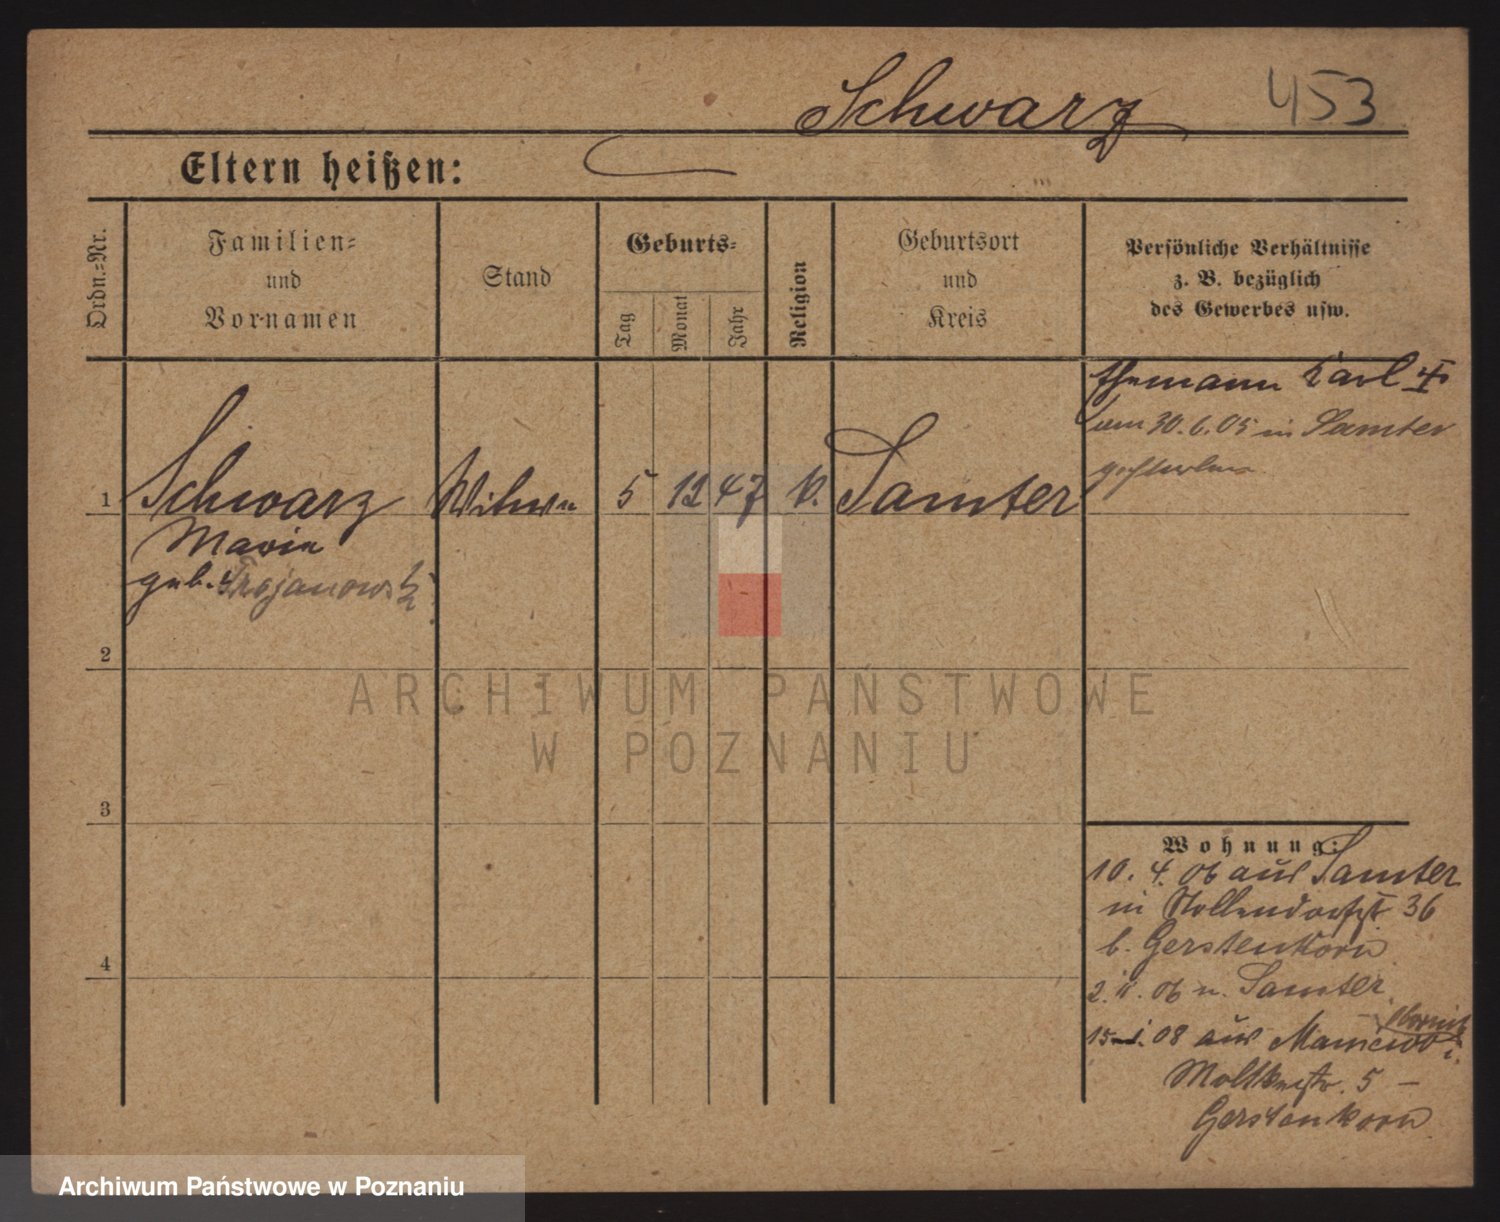 Schwarz 453
Eltern heißen:
Ordn.=Nr.
Familien=
und
Vornamen
Stand
Geburts=
Tag
Monat
Jahr
Religion
Geburtsort
und
Kreis
Persönliche Verhältnisse
z. B. bezüglich
des Gewerbes usw.
Ehemann Karl
am 30. 6. 05 in Samter
gestorben
1 Schwarz Witwe 5 12 47 k. Samter
Marie
geb. Trojanowska
2
3
4
Wohnung:
10. 4. 06 aus Samter
in Nollendorfstr 36
b. Gerstenkorn
2. 11. 06 n. Samter
15 1. 08 aus
Obornik
Moltkestr. 5 –
Gerstenkorn
ARCHIWUM PAŃSTWOWE
W POZNANIU
Archiwum Państwowe w Poznaniu